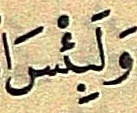 وَلَبِئْسَ ا